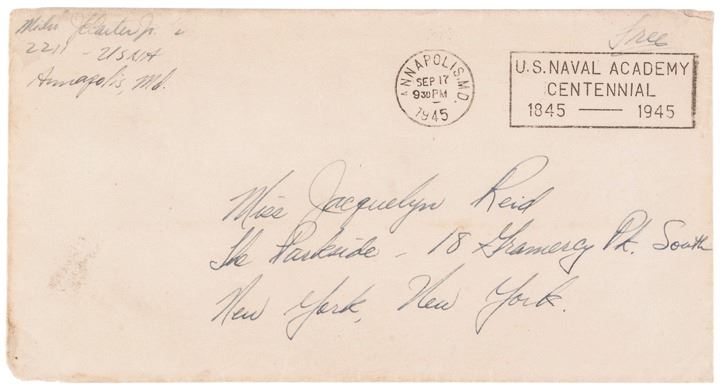 Midn J E Carter Jr.
2211 - USNA
Annapolis, Md.
Free
ANNAPOLIS, MD.
SEP 17
930 PM
1945
U.S. NAVAL ACADEMY
CENTENNIAL
1845 — 1945
Miss Jacquelyn Reid
The Parkside - 18 Gramercy Pk. South
New York, New York.